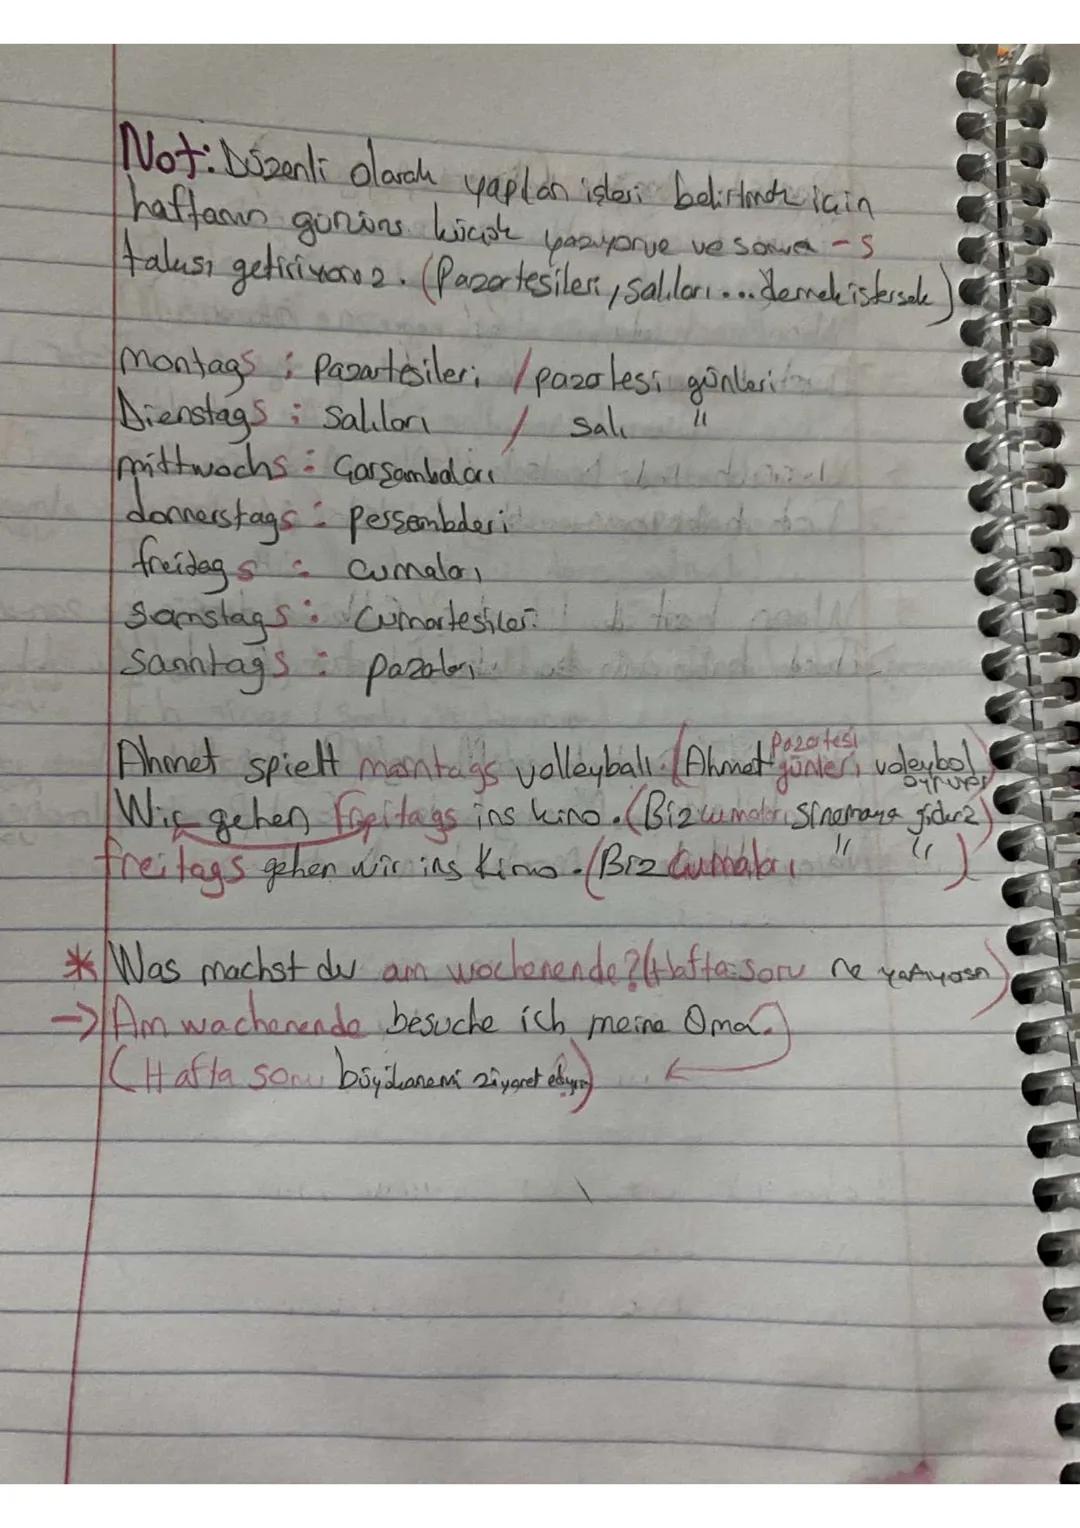 Not: Düzenli olarak yapılan işleri belirtmek için
haftanın gününü küçük yazıyoruz ve sonuna -s
takısı getiriyoruz. (Pazartesileri, salıları... demek istersek)
montags : pazartesileri / pazartesi günleri
Dienstags : salıları / salı "
mittwochs : Çarşambaları
donnerstags : perşembeleri
freidags : cumaları
samstags : Cumartesileri
Sanntags : pazarları
Ahmet spielt montags volleyball. (Ahmet pazartesi günleri voleybol oynuyor)
Wir gehen freitags ins kino. (Biz cumaları sinemaya gideriz)
freitags gehen wir ins Kino. (Biz Cumaları " " )
* Was machst du am wochenende? (Hafta sonu ne yapıyosn)
→ Am wachenende besuche ich meine Oma.
(Hafta sonu büyükanemi ziyaret ediyrm)